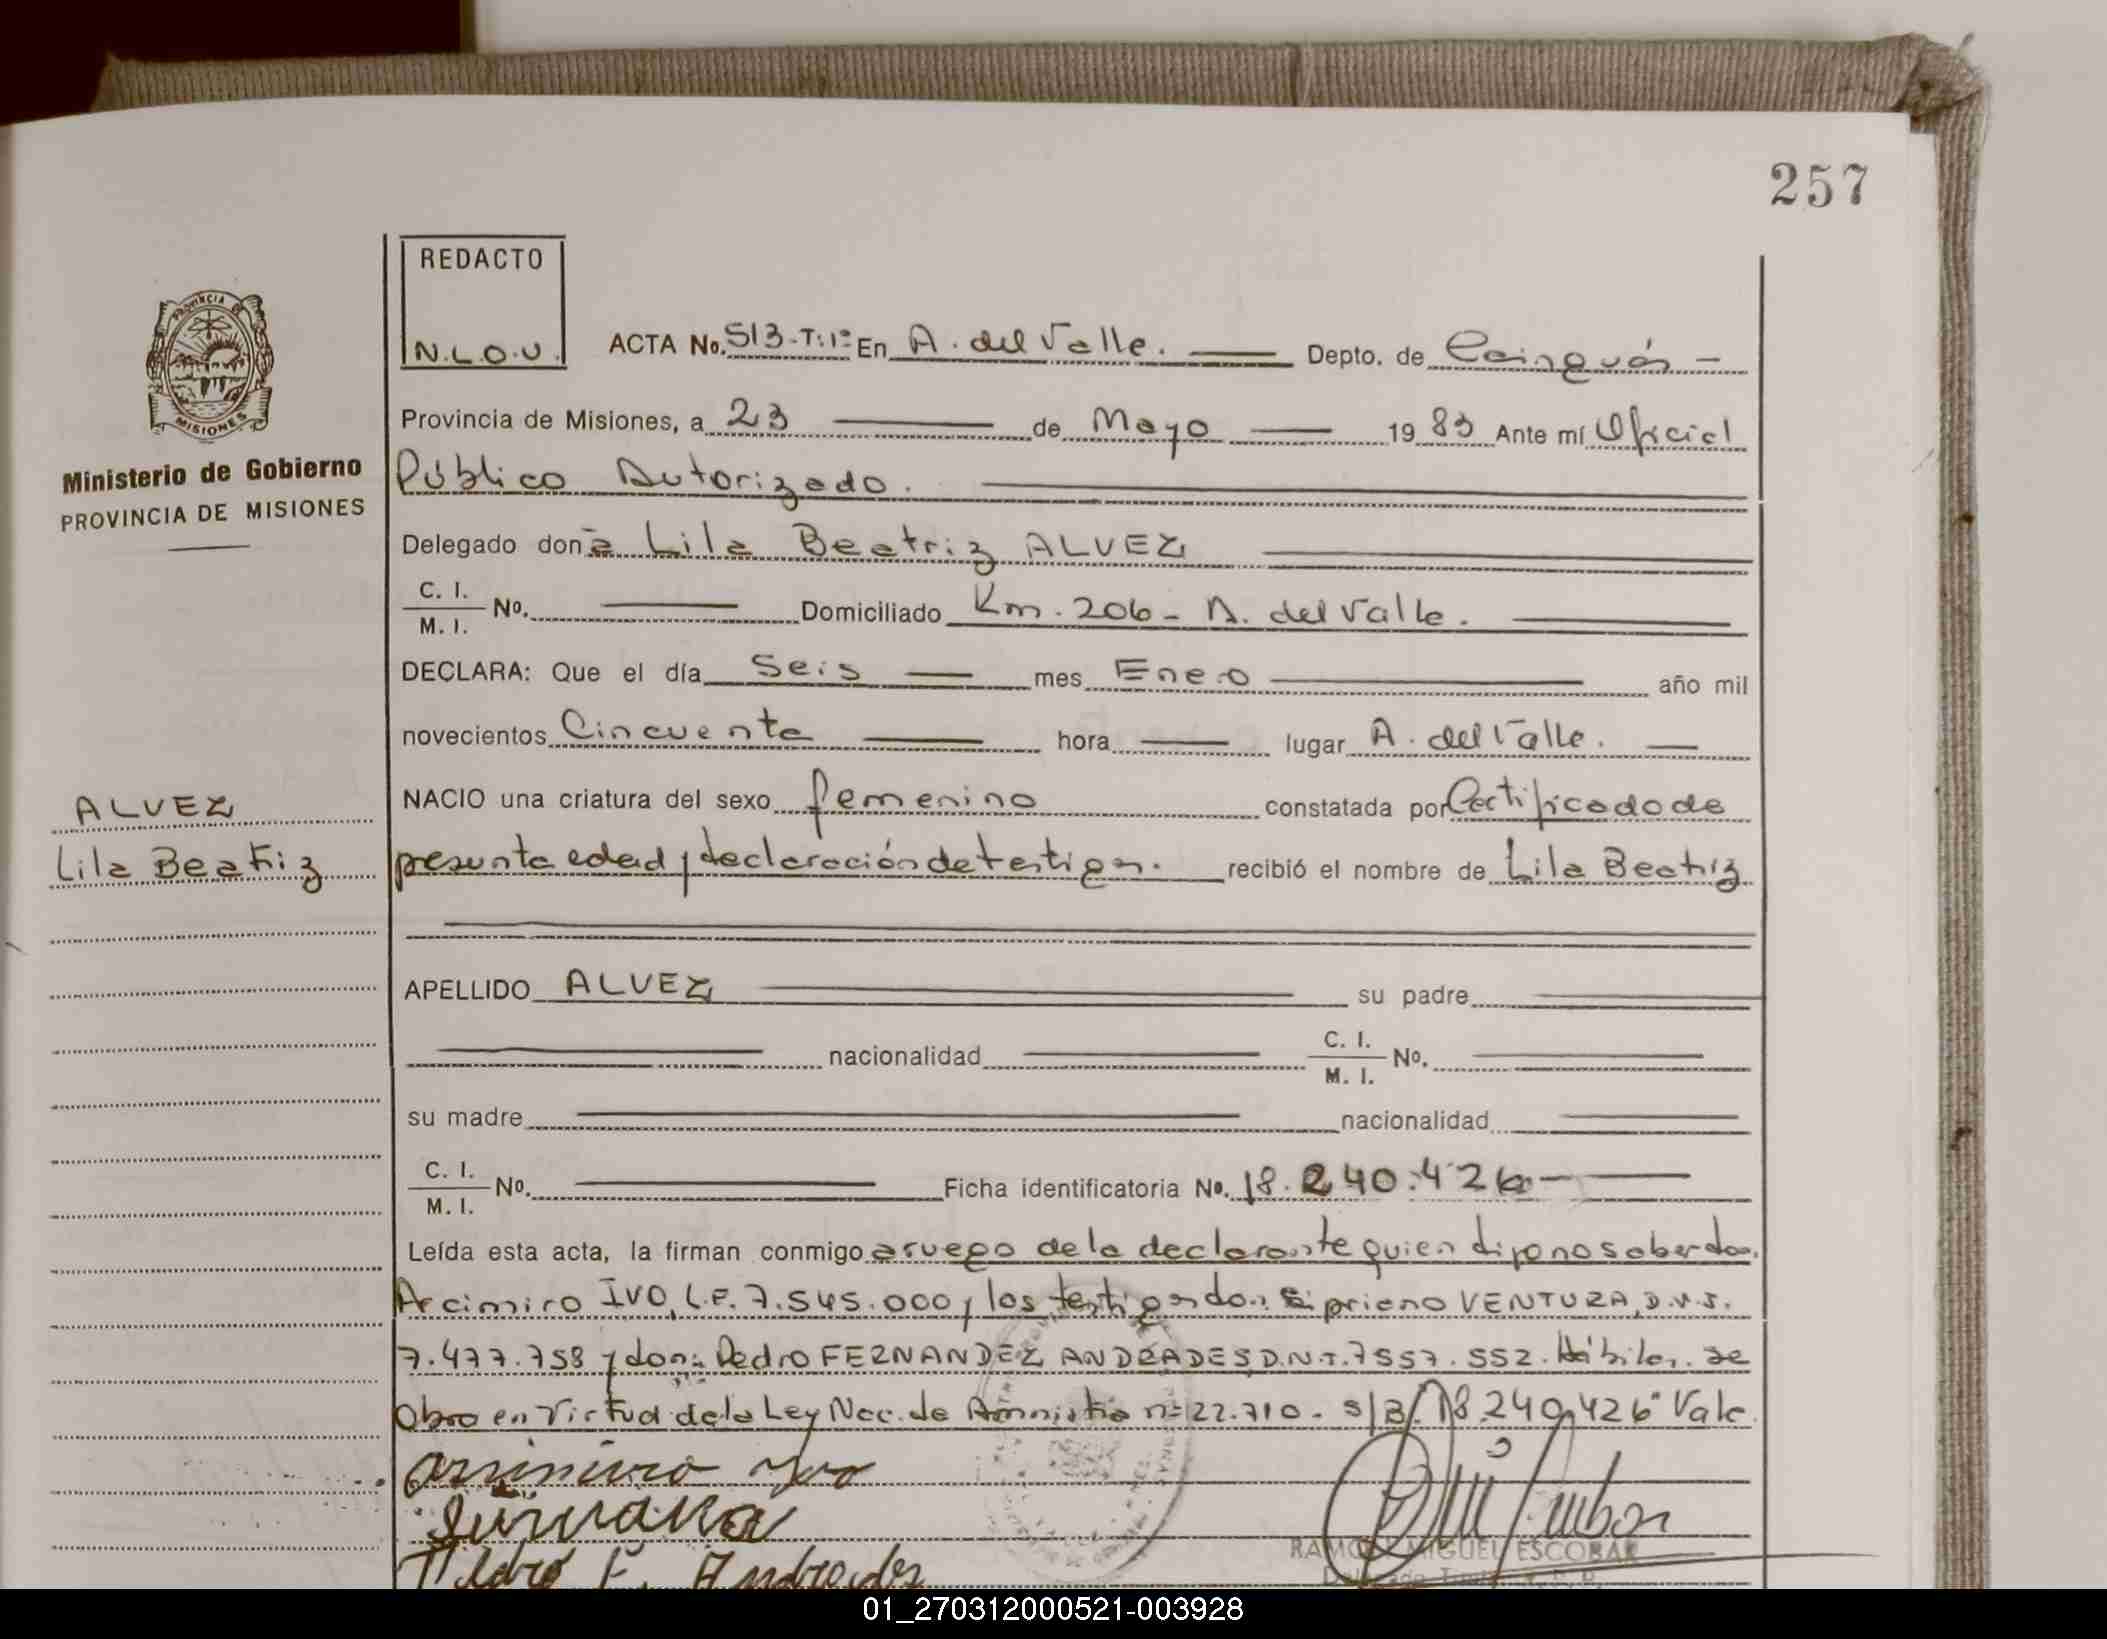 257
REDACTO
N.L.O.U.
ACTA No. 513-T:1º En A. del Valle. Depto. de Cainguás -
Provincia de Misiones, a 23 de Mayo 19 83 Ante mí Oficial
Público Autorizado.
PROVINCIA DE
MISIONES
Ministerio de Gobierno
PROVINCIA DE MISIONES
Delegado don a Lila Beatriz ALVEZ
C. I.
M. I. No. Domiciliado Km. 206 - A. del Valle.
DECLARA: Que el día Seis mes Enero año mil
novecientos Cincuenta hora lugar A. del Valle.
ALVEZ
Lila Beatriz
NACIO una criatura del sexo femenino constatada por Certificado de
presunta edad y declaración de testigos. recibió el nombre de Lila Beatriz
APELLIDO ALVEZ su padre
nacionalidad C. I.
M. I. No.
su madre nacionalidad
C. I.
M. I. No. Ficha identificatoria No. 18.240.426
Leída esta acta, la firman conmigo a ruego de la declarante quien dijo no saber don.
Arcimiro IVO, L.E. 7.545.000 y los testigos don: Sipriano VENTURA, D.N.I.
7.477.758 y don: Pedro FERNANDEZ ANDRADES D.N.I. 7557.552. Hábiles. Se
obra en virtud de la Ley Nac. de Amnistia nº 22.710. s/B/. 18.240.426" Vale
Pedro F. Andrades
RAMON MIGUEL ESCOBAR
01_270312000521-003928